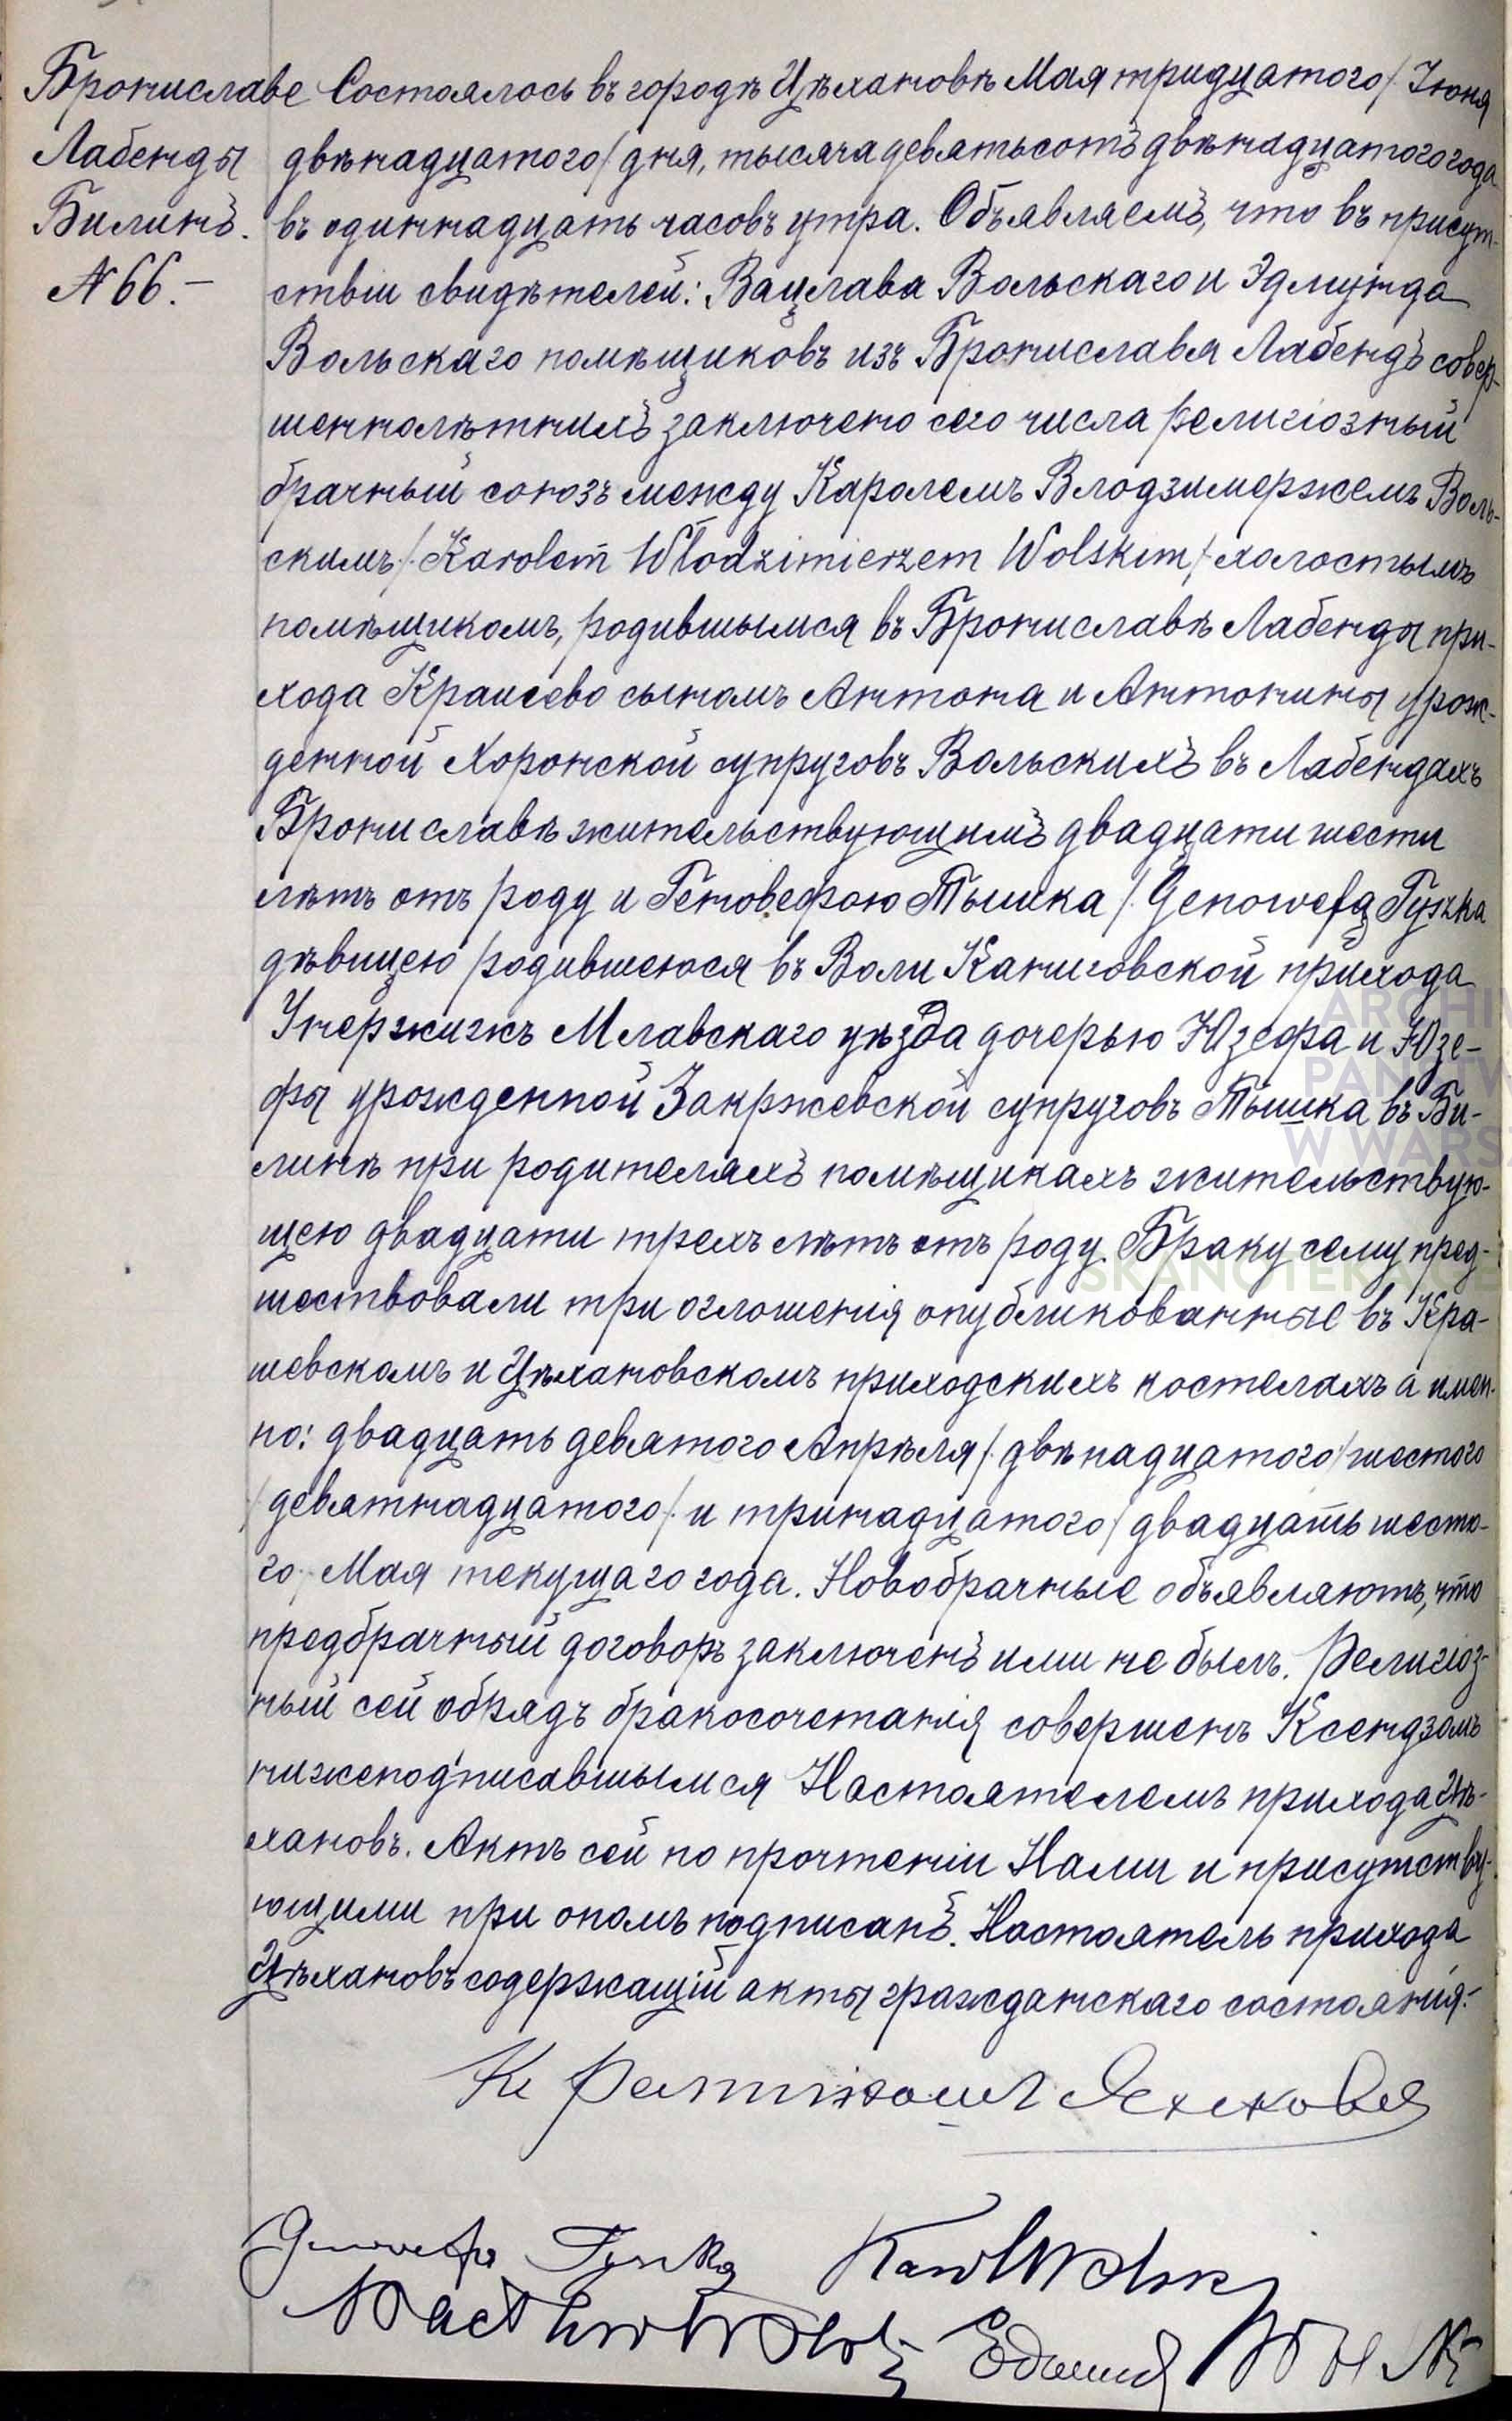 Брониславе
Лабенды
Билинъ.
№ 66.-
Состоялось въ городѣ Цѣхановѣ Мая тридцатого /: Іюня
двѣнадцатого / дня, тысяча девятьсотъ двѣнадцатого года
въ одиннадцать часовъ утра. Объявляемъ, что въ присут-
ствіи свидѣтелей: Вацлава Вольскаго и Эдмунда
Вольскаго помѣщиковъ изъ Брониславя Лабендъ совер-
шеннолѣтнихъ заключено сего числа религіозный
брачный союзъ между Каролемъ Влодзимержемъ Воль-
скимъ /: Karolem Włodzimierzem Wolskim / холостымъ
помѣщикомъ, родившымся въ Брониславѣ Лабенды при-
хода Крашево сыномъ Антона и Антонины урож-
денной Хоронской супруговъ Вольскихъ въ Лабендахъ
Брониславѣ жительствующимъ двадцати шести
лѣтъ отъ роду и Геновефою Тышка /: Genowefą Tyszka
дѣвицею родившеюся въ Воли Каниговской прихода
Унержижъ Млавскаго уѣзда дочерью Юзефа и Юзе-
фы урожденной Закржевской супруговъ Тышка въ Би-
линѣ при родителяхъ помѣщикахъ жительствую-
щею двадцати трехъ лѣтъ отъ роду. Браку сему пред-
шествовали три оглошенія опубликованные въ Кра-
шевскомъ и Цѣхановскомъ приходскихъ костелахъ а имен-
но: двадцать девятого Апрѣля /: двѣнадцатого / шестого
/ девятнадцатого /: и тринадцатого / двадцать шесто-
го / Мая текущаго года. Новобрачные объявляютъ, что
предбрачный договоръ заключенъ ими не былъ. Религіоз-
ный сей обрядъ бракосочетанія совершенъ Ксендзомъ
нижеподписавшымся Настоятелемъ прихода Цѣ-
хановъ. Актъ сей по прочтеніи Нами и присутству-
ющими при ономъ подписанъ. Настоятель прихода
Цѣхановъ содержащій акты гражданскаго состоянія:-
Genowefa Tyszka Karol Wolski
Wacław Wolski Edmund Wolski
ARCHIW
PAŃSTW
W WARS
SKANOTEKA.GE